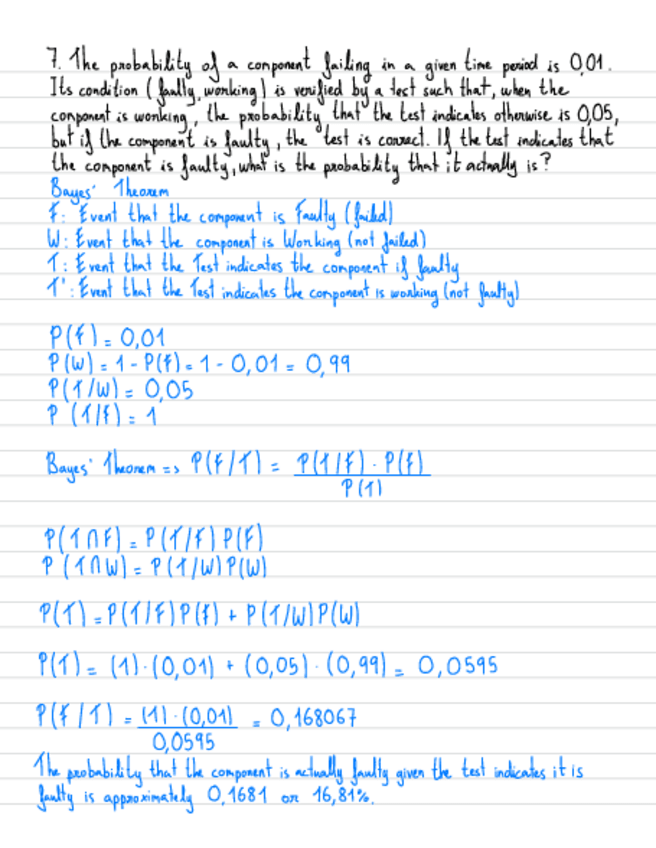 7. The probability of a component failing in a given time period is 0,01.
Its condition (faulty, working) is verified by a test such that, when the
component is working, the probability that the test indicates otherwise is 0,05,
but if the component is faulty, the test is correct. If the test indicates that
the component is faulty, what is the probability that it actually is?
Bayes' Theorem
F: Event that the component is Faulty (failed)
W: Event that the component is Working (not failed)
T: Event that the Test indicates the component if faulty
T': Event that the Test indicates the component is working (not faulty)
P(F) = 0,01
P(W) = 1 - P(F) = 1 - 0,01 = 0,99
P(T/W) = 0,05
P (T/F) = 1
Bayes' Theorem => P(F/T) = P(T/F) . P(F)
P(T)
P(T∩F) = P(T/F) P(F)
P (T∩W) = P(T/W) P(W)
P(T) = P(T/F) P(F) + P(T/W) P(W)
P(T) = (1) . (0,01) + (0,05) . (0,99) = 0,0595
P(F/T) = (1) . (0,01) = 0,168067
0,0595
The probability that the component is actually faulty given the test indicates it is
faulty is approximately 0,1681 or 16,81%.